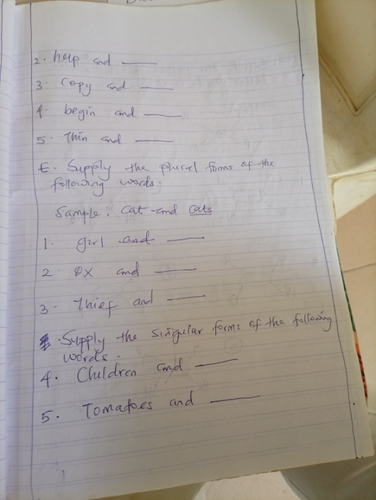 2. help and ___
3. copy and ___
4. begin and ___
5. Thin and ___
E. Supply the plural forms of the
following words.
Sample: cat and cats
1. girl and ___
2. ox and ___
3. Thief and ___
Supply the singular forms of the following
words.
4. Children and ___
5. Tomatoes and ___